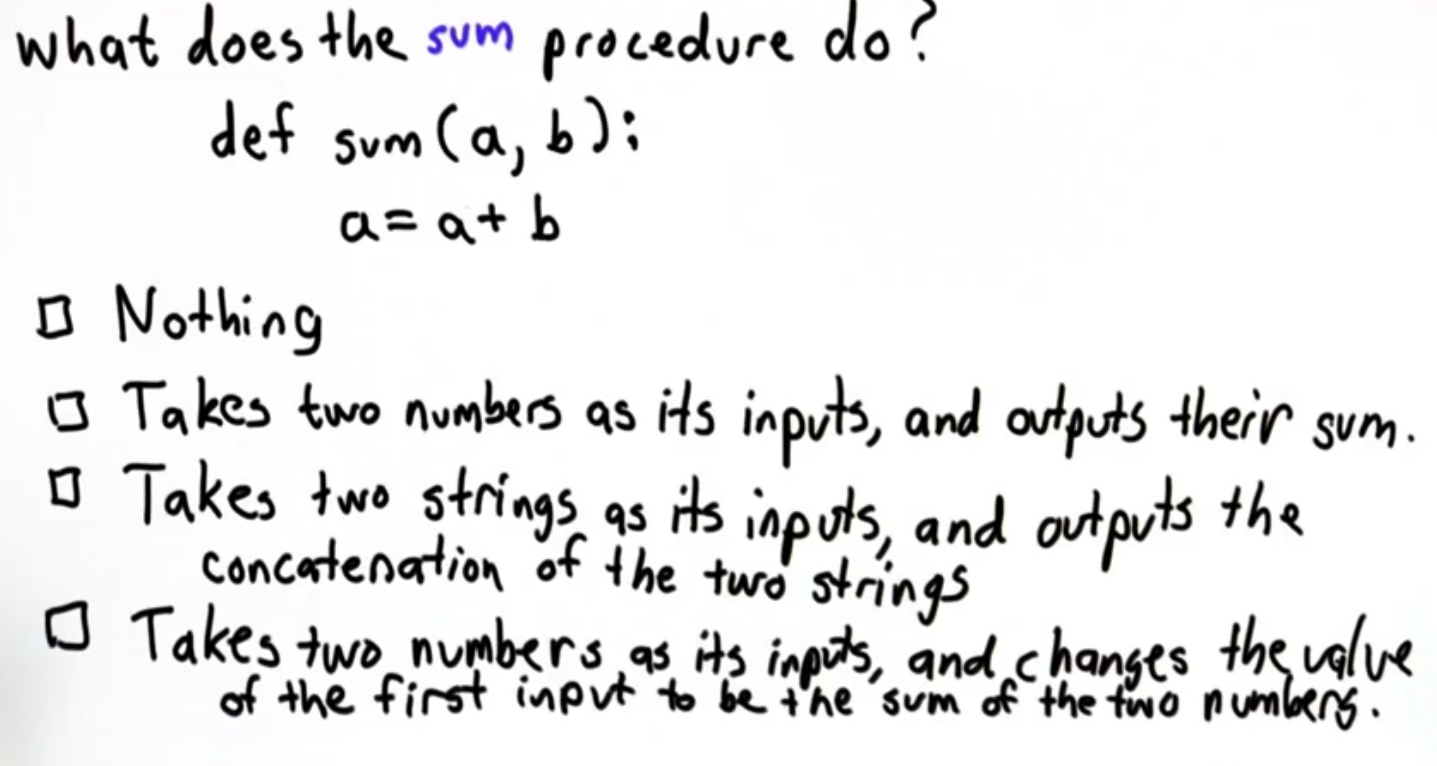 what does the sum procedure do?
def sum(a, b):
a = a + b
Nothing
Takes two numbers as its inputs, and outputs their sum.
Takes two strings as its inputs, and outputs the
concatenation of the two strings
Takes two numbers as its inputs, and changes the value
of the first input to be the sum of the two numbers.